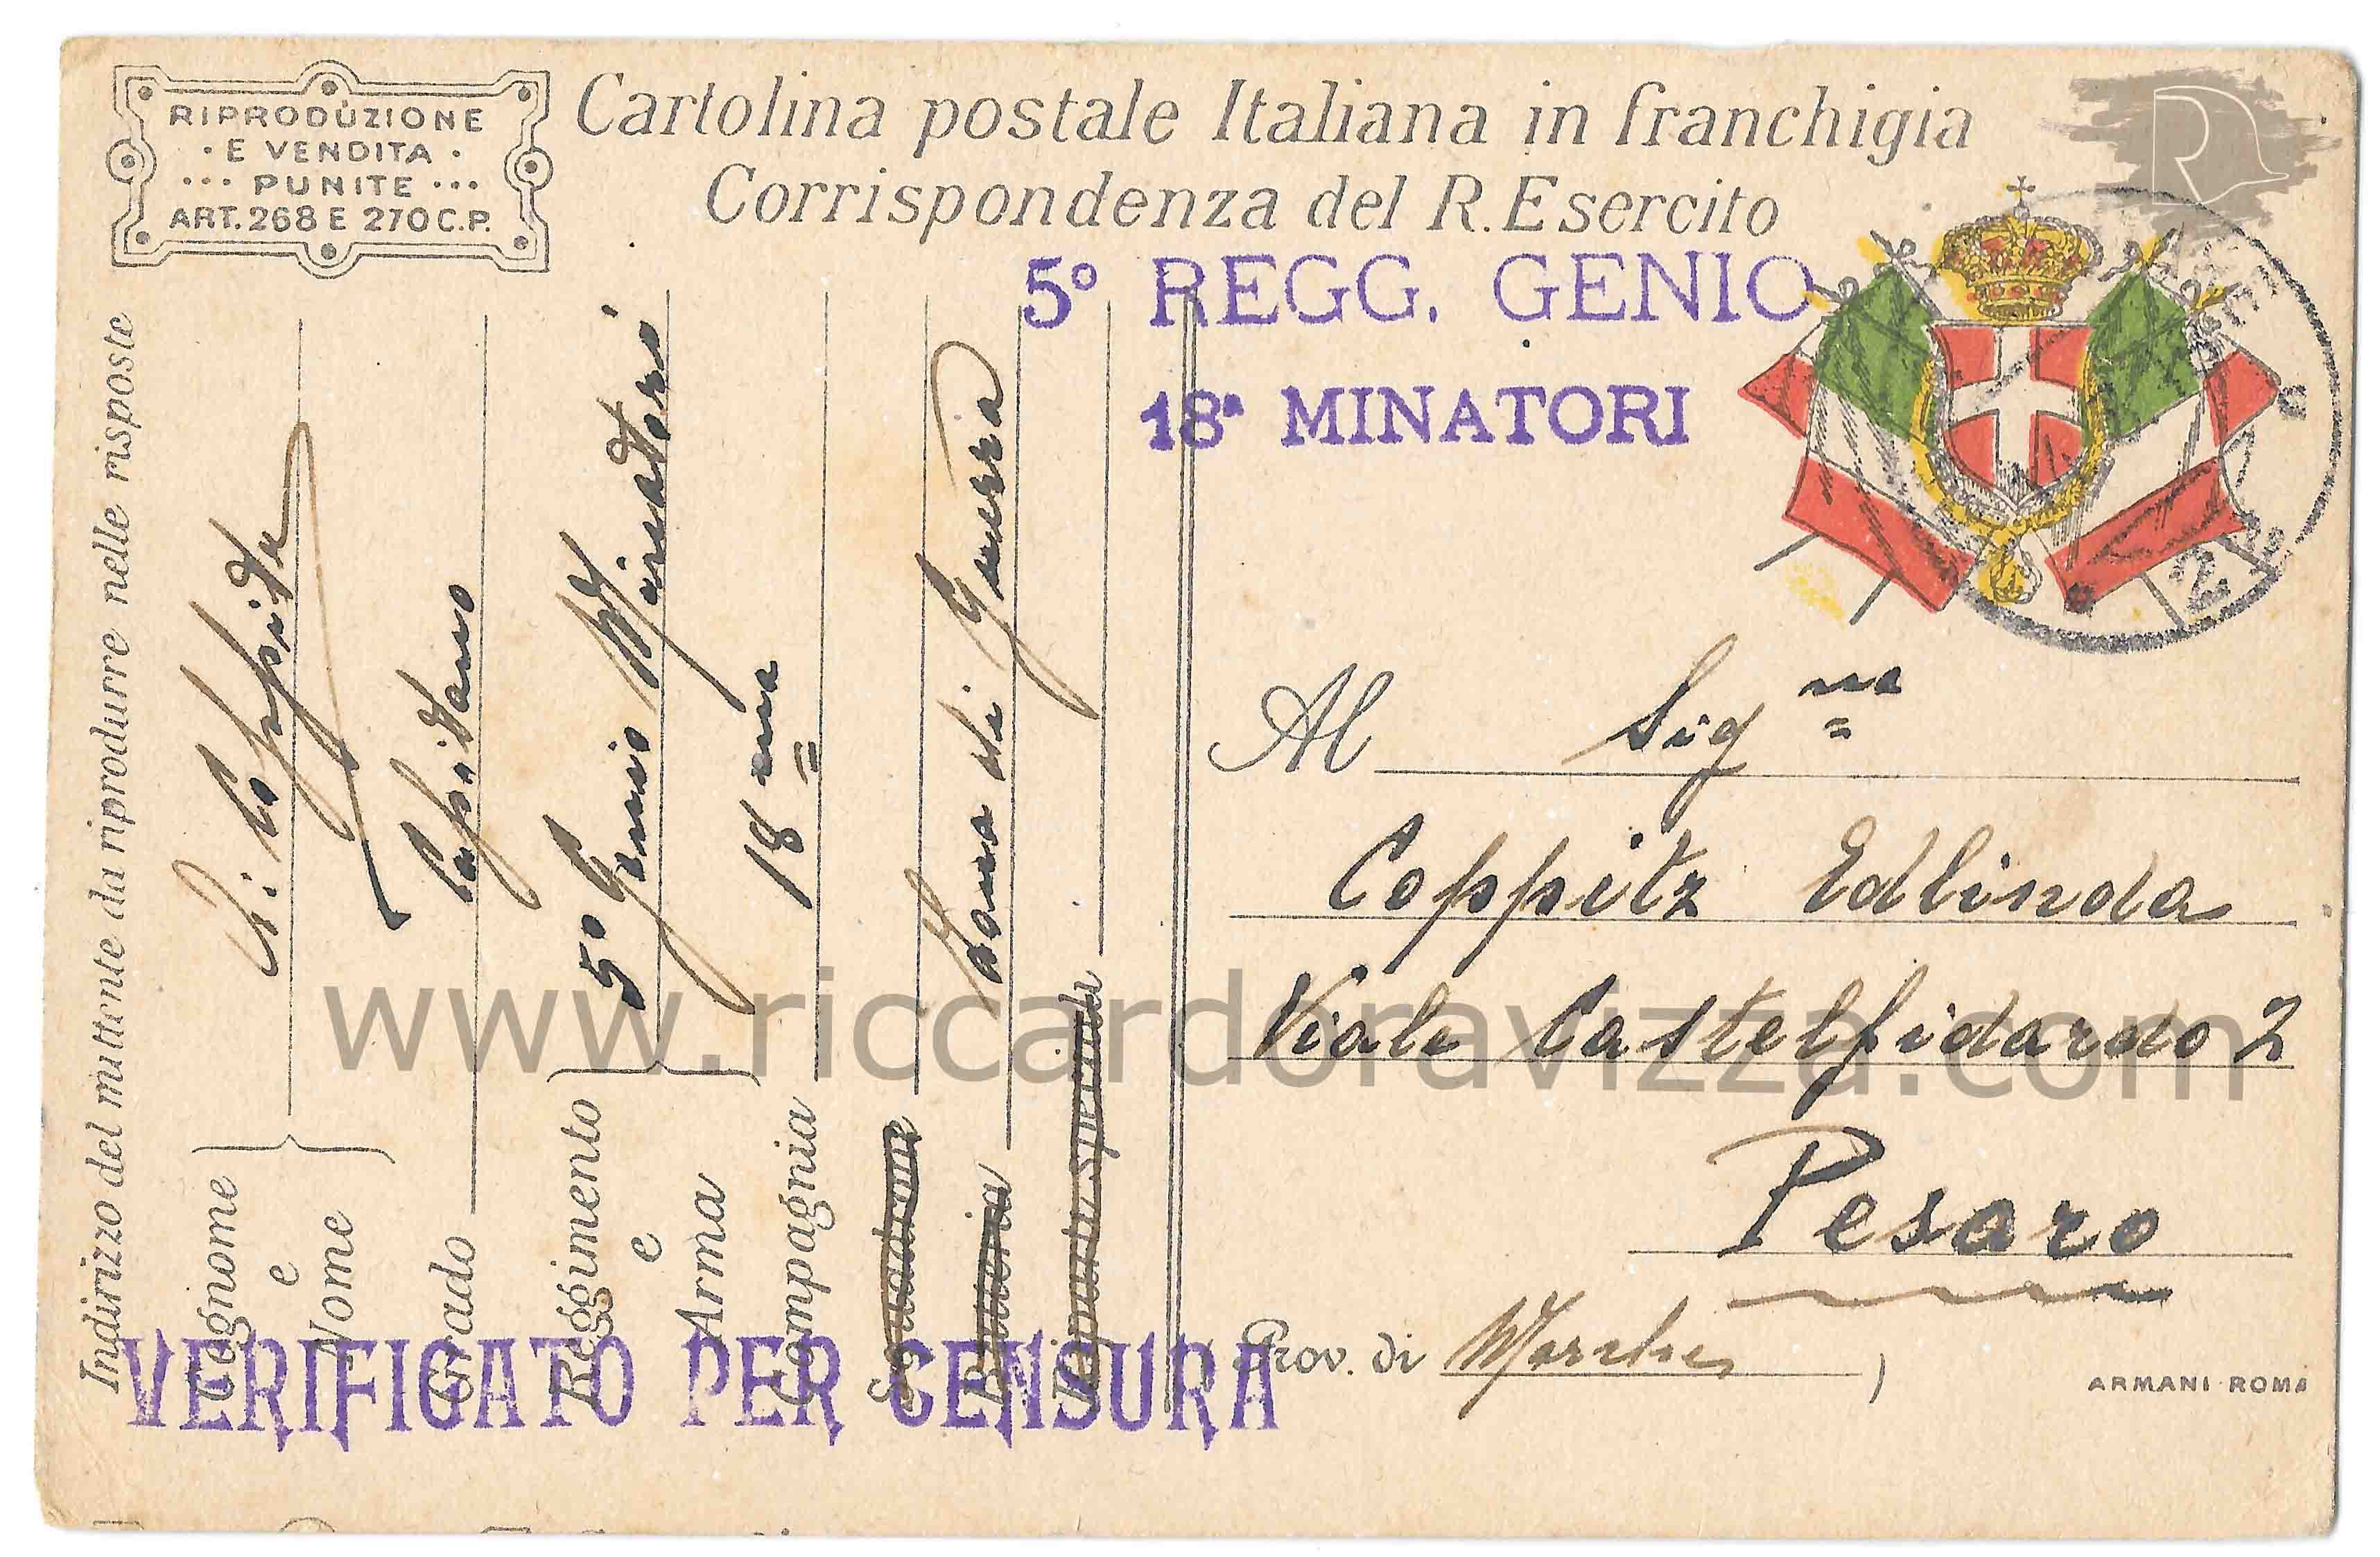 RIPRODUZIONE
· E VENDITA ·
··· PUNITE ···
ART. 268 E 270 C.P.
Cartolina postale Italiana in franchigia
Corrispondenza del R. Esercito
5° REGG. GENIO
18ª MINATORI
Indirizzo del mittente da riprodurre nelle risposte
Cognome
e
Nome
Grado Capitano
Reggimento
e
Arma
5° Genio Minatori
Compagnia 18 ma
Squadrone
Batteria Zona di Guerra
Reparti speciali
Al Sig na
Coppitz Edlinda
Viale Castelfidardo 2
Pesaro
Prov. di Marche
ARMANI ROMA
VERIFICATO PER CENSURA
www.riccardoravizza.com